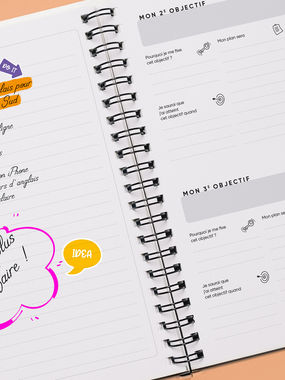 DO IT
lais pour
Sud
ligne
on iPhone
ers d'anglais
laire
lus
faire !
IDEA
MON 2E OBJECTIF
Pourquoi je me fixe
cet objectif ?
Mon plan sera
Je saurai que
j'ai atteint
cet objectif quand
MON 3E OBJECTIF
Pourquoi je me fixe
cet objectif ?
Mon plan sera
Je saurai que
j'ai atteint
cet objectif quand